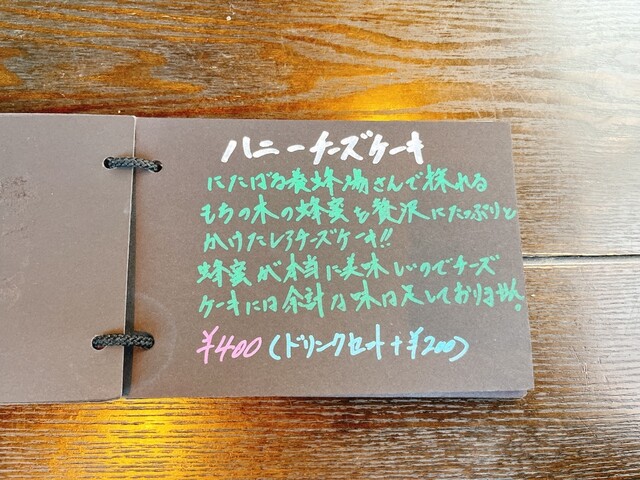 ハニーチーズケーキ
にたばる養蜂場さんで採れる
もちの木の蜂蜜を贅沢にたっぷりと
かけたレアチーズケーキ!!
蜂蜜が本当に美味しいのでチーズ
ケーキには余計な味は足しておりません。
¥400(ドリンクセット+¥200)